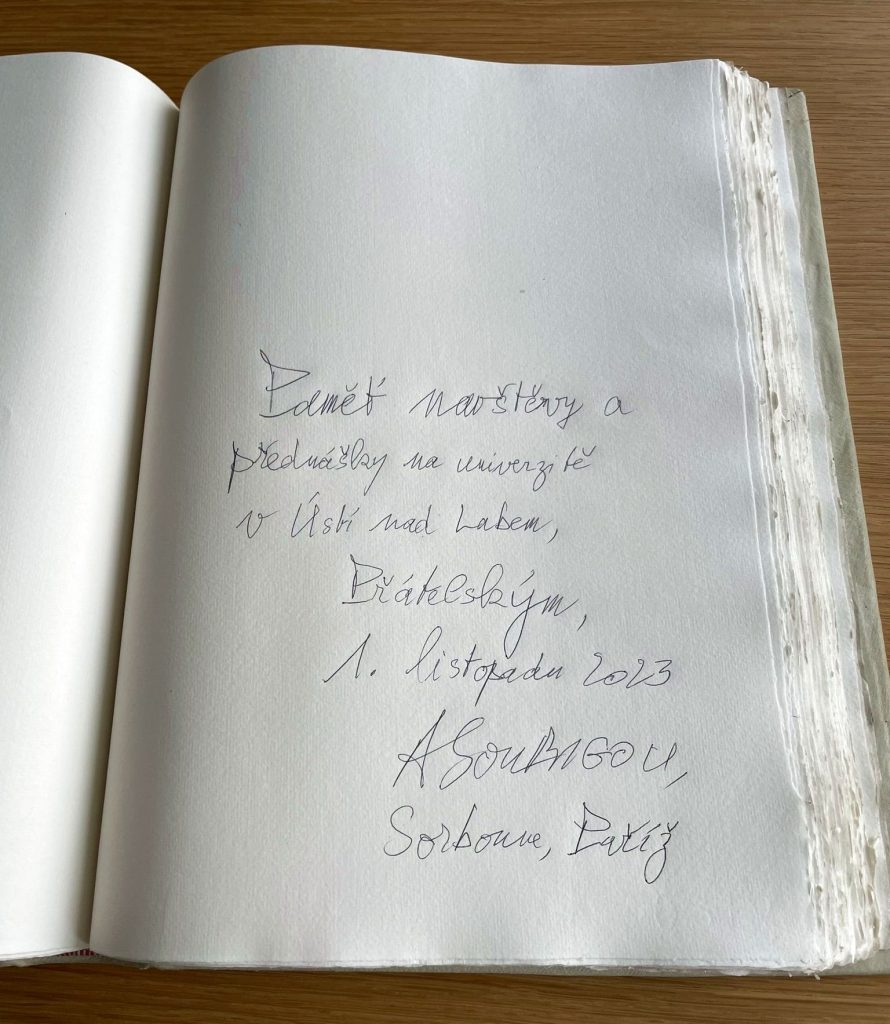 Paměť navštěvy a
přednášky na univerzitě
v Ústí nad Labem,
Přátelským,
1. listopadu 2023
A SOUBIGOU,
Sorbonne, Paříž